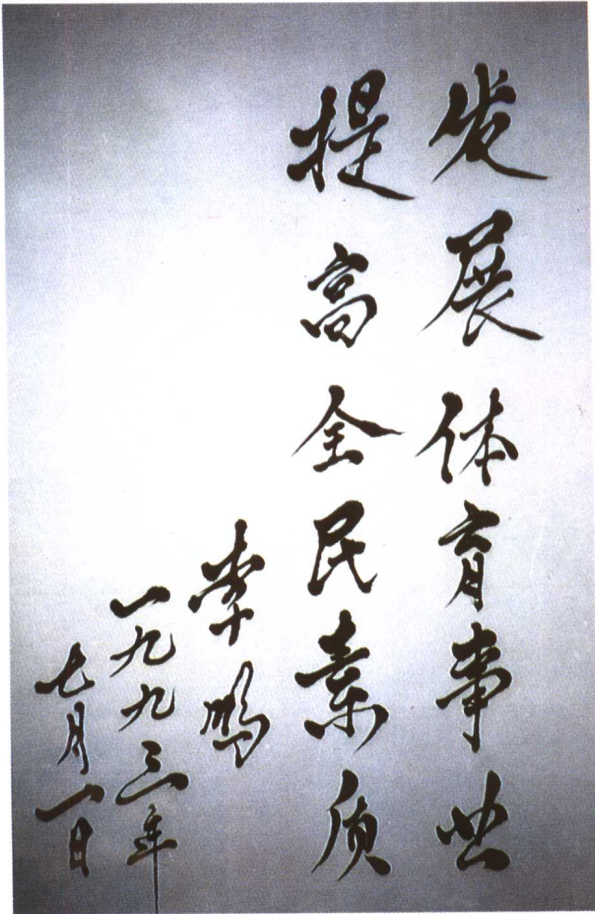 发展体育事业
提高全民素质
李鹏
一九九三年
七月一日